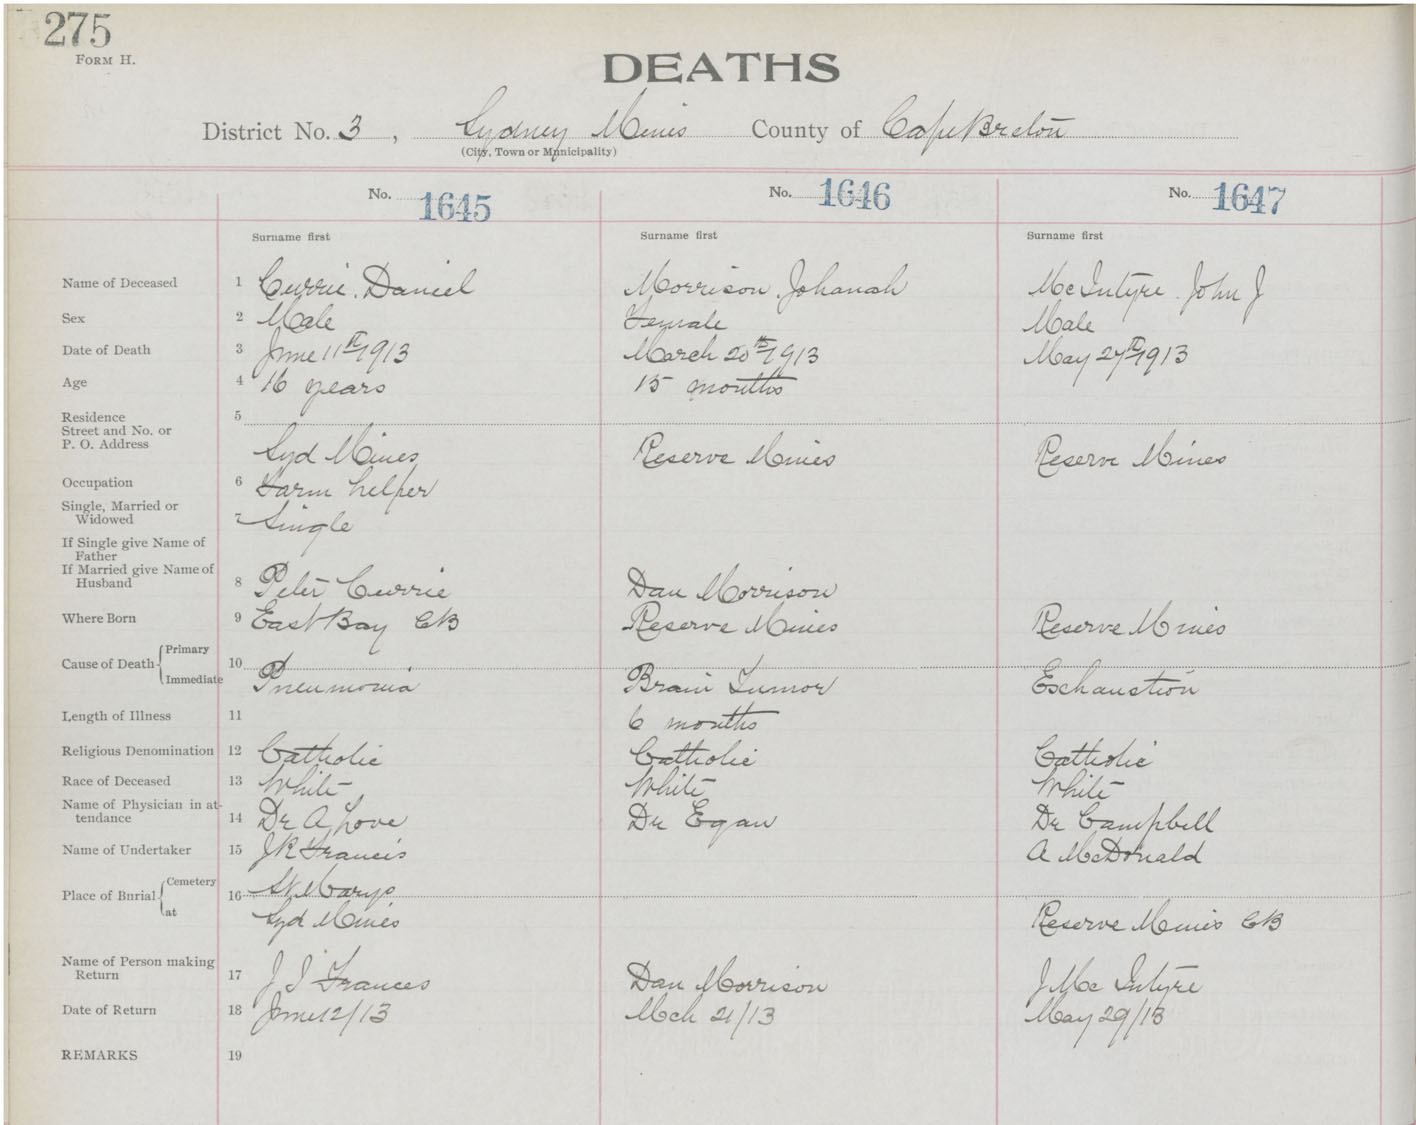 275
FORM H.
DEATHS
District No. 3, Sydney Mines County of Cape Breton
(City, Town or Municipality)
No. 1645 No. 1646 No. 1647
Surname first Surname first Surname first
Name of Deceased 1 Currie. Daniel Morrison. Johanah McIntyre. John J
Sex 2 Male Female Male
Date of Death 3 June 11th 1913 March 20th 1913 May 27th 1913
Age 4 16 years 15 months
Residence 5
Street and No. or
P. O. Address Syd Mines Reserve Mines Reserve Mines
Occupation 6 Farm helper
Single, Married or
Widowed 7 Single
If Single give Name of
Father
If Married give Name of
Husband 8 Peter Currie Dan Morrison
Where Born 9 East Bay CB Reserve Mines Reserve Mines
Cause of Death Primary 10
Immediate Pneumonia Brain Tumor Exchaustion
Length of Illness 11 6 months
Religious Denomination 12 Catholic Catholic Catholic
Race of Deceased 13 White White White
Name of Physician in at-
tendance 14 Dr A Love Dr Egan Dr Campbell
Name of Undertaker 15 J R Francis A McDonald
Place of Burial Cemetery 16 St Marys
at Syd Mines Reserve Mines CB
Name of Person making
Return 17 J J Frances Dan Morrison J McIntyre
Date of Return 18 June 12/13 Mch 21/13 May 29/13
REMARKS 19